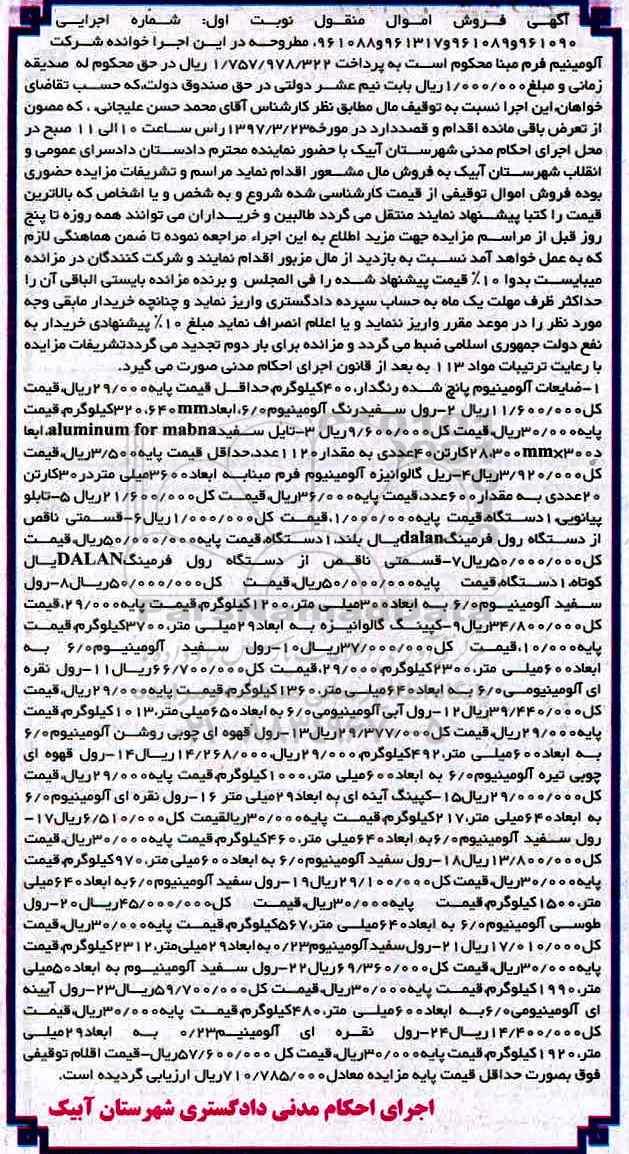 آگهی فروش اموال منقول نوبت اول: شماره اجرایی
۹۶۱۰۹۰و۹۶۱۰۸۹و۹۶۱۳۱۷و۹۶۱۰۸۸، مطروحه در این اجرا خوانده شرکت
آلومینیم فرم مبنا محکوم است به پرداخت ۱/۷۵۷/۹۷۸/۳۲۲ ریال در حق محکوم له صدیقه
زمانی و مبلغ۱/۰۰۰/۰۰۰ریال بابت نیم عشر دولتی در حق صندوق دولت،که حسب تقاضای
خواهان،این اجرا نسبت به توقیف مال مطابق نظر کارشناس آقای محمد حسن علیجانی، ، که مصون
از تعرض باقی مانده اقدام و قصددارد در مورخه۱۳۹۷/۳/۲۳راس ساعت ۱۰الی ۱۱ صبح در
محل اجرای احکام مدنی شهرستان آبیک با حضور نماینده محترم دادستان دادسرای عمومی و
انقلاب شهرستان آبیک به فروش مال مشعور اقدام نماید مراسم و تشریفات مزایده حضوری
بوده فروش اموال توقیفی از قیمت کارشناسی شده شروع و به شخص و یا اشخاص که بالاترین
قیمت را کتبا پیشنهاد نمایند منتقل می گردد طالبین و خریداران می توانند همه روزه تا پنج
روز قبل از مراسم مزایده جهت مزید اطلاع به این اجراء مراجعه نموده تا ضمن هماهنگی لازم
که به عمل خواهد آمد نسبت به بازدید از مال مزبور اقدام نمایند و شرکت کنندگان در مزائده
میبایست بدوا ۱۰٪ قیمت پیشنهاد شده را فی المجلس و برنده مزائده بایستی الباقی آن را
حداکثر ظرف مهلت یک ماه به حساب سپرده دادگستری واریز نماید و چنانچه خریدار مابقی وجه
مورد نظر را در موعد مقرر واریز ننماید و یا اعلام انصراف نماید مبلغ ۱۰٪ پیشنهادی خریدار به
نفع دولت جمهوری اسلامی ضبط می گردد و مزائده برای بار دوم تجدید می گرددتشریفات مزایده
با رعایت ترتیبات مواد ۱۱۳ به بعد از قانون اجرای احکام مدنی صورت می گیرد.
۱-ضایعات آلومینیوم پانچ شده رنگدار،۴۰۰کیلوگرم،حداقل قیمت پایه۲۹/۰۰۰ریال،قیمت
کل۱۱/۶۰۰/۰۰۰ریال ۲-رول سفیدرنگ آلومینیوم۶/۰،ابعاد۳۲۰،۶۴۰mmکیلوگرم،قیمت
پایه۳۰/۰۰۰ریال،قیمت کل۹/۶۰۰/۰۰۰ریال ۳-تایل سفیدaluminum for mabna،ابعا
د۲۸،۳۰۰mm×۳۰۰کارتن۴۰عددی به مقدار۱۱۲۰عدد،حداقل قیمت پایه۳/۵۰۰ریال،قیمت
کل۳/۹۲۰/۰۰۰ریال۴-ریل گالوانیزه آلومینیوم فرم مبنابه ابعاد۳۶۰۰میلی متردر۳۰کارتن
۲۰عددی به مقدار۶۰۰عدد،قیمت پایه۳۶/۰۰۰ریال،قیمت کل۲۱/۶۰۰/۰۰۰ریال ۵-تابلو
پیانویی،۱دستگاه،قیمت پایه۱/۰۰۰/۰۰۰،قیمت کل۱/۰۰۰/۰۰۰ریال۶-قسمتی ناقص
از دستگاه رول فرمینگdalanیال بلند،۱دستگاه،قیمت پایه۵۰/۰۰۰/۰۰۰ریال،قیمت
کل۵۰/۰۰۰/۰۰۰ریال۷-قسمتی ناقص از دستگاه رول فرمینگDALANیال
کوتاه،۱دستگاه،قیمت پایه۵۰/۰۰۰/۰۰۰ریال،قیمت کل۵۰/۰۰۰/۰۰۰ریال۸-رول
سفید آلومینیوم۶/۰ به ابعاد۳۰۰میلی متر،۱۲۰۰کیلوگرم،قیمت پایه۲۹/۰۰۰،قیمت
کل۳۴/۸۰۰/۰۰۰ریال۹-کپینگ گالوانیزه به ابعاد۲۹میلی متر،۳۷۰۰کیلوگرم،قیمت
پایه۱۰/۰۰۰،قیمت کل۳۷/۰۰۰/۰۰۰ریال۱۰-رول سفید آلومینیوم۶/۰ به
ابعاد۶۰۰میلی متر،۲۳۰۰کیلوگرم،۲۹/۰۰۰،قیمت کل۶۶/۷۰۰/۰۰۰ریال۱۱-رول نقره
ای آلومینیومی۶/۰ به ابعاد۶۴۰میلی متر،۱۳۶۰کیلوگرم،قیمت پایه۲۹/۰۰۰ریال،قیمت
کل۳۹/۴۴۰/۰۰۰ریال۱۲-رول آبی آلومینیومی۶/۰ به ابعاد۶۵۰میلی متر،۱۰۱۳کیلوگرم،قیمت
پایه۲۹/۰۰۰ریال،قیمت کل۲۹/۳۷۷/۰۰۰ریال۱۳-رول قهوه ای چوبی روشن آلومینیوم۶/۰
به ابعاد۶۰۰میلی متر،۴۹۲کیلوگرم،۲۹/۰۰۰ریال،۱۴/۲۶۸/۰۰۰ریال۱۴-رول قهوه ای
چوبی تیره آلومینیوم۶/۰ به ابعاد۶۰۰میلی متر،۱۰۰۰کیلوگرم،قیمت پایه۲۹/۰۰۰ریال،قیمت
کل۲۹/۰۰۰/۰۰۰ریال۱۵-کپینگ آینه ای به ابعاد۲۹میلی متر ۱۶-رول نقره ای آلومینیوم۶/۰
به ابعاد۶۴۰میلی متر،۲۱۷کیلوگرم،قیمت پایه۳۰/۰۰۰ریالقیمت کل۶/۵۱۰/۰۰۰ریال۱۷-
رول سفید آلومینیوم۶/۰به ابعاد۶۴۰میلی متر،۴۶۰کیلوگرم،قیمت پایه۳۰/۰۰۰ریال،قیمت
کل۱۳/۸۰۰/۰۰۰ریال۱۸-رول سفید آلومینیوم۶/۰ به ابعاد۶۰۰میلی متر،۹۷۰کیلوگرم،قیمت
پایه۳۰/۰۰۰ریال،قیمت کل۲۹/۱۰۰/۰۰۰ریال۱۹-رول سفید آلومینیوم۶/۰به ابعاد۶۴۰میلی
متر،۱۵۰۰کیلوگرم،قیمت پایه۳۰/۰۰۰ریال،قیمت کل۴۵/۰۰۰/۰۰۰ریال۲۰-رول
طوسی آلومینیوم۶/۰ به ابعاد۶۴۰میلی متر،۵۶۷کیلوگرم،قیمت پایه۳۰/۰۰۰ریال،قیمت
کل۱۷/۰۱۰/۰۰۰ریال۲۱-رول سفید آلومینیوم۰/۲۳ به ابعاد۲۹میلی متر،۲۳۱۲کیلوگرم،قیمت
پایه۳۰/۰۰۰ریال،قیمت کل۶۹/۳۶۰/۰۰۰ریال۲۲-رول سفید آلومینیوم به ابعاد۵۰میلی
متر،۱۹۹۰کیلوگرم،قیمت پایه۳۰/۰۰۰ریال،قیمت کل۵۹/۷۰۰/۰۰۰ریال۲۳-رول آیینه
ای آلومینیومی۶/۰به ابعاد۶۰۰میلی متر،۴۸۰کیلوگرم،قیمت پایه۳۰/۰۰۰ریال،قیمت
کل۱۴/۴۰۰/۰۰۰ریال۲۴-رول نقره ای آلومینیم۰/۲۳ به ابعاد۲۹میلی
متر،۱۹۲۰کیلوگرم،قیمت پایه۳۰/۰۰۰ریال،قیمت کل ۵۷/۶۰۰/۰۰۰ریال-قیمت اقلام توقیفی
فوق بصورت حداقل قیمت پایه مزایده معادل۷۱۰/۷۸۵/۰۰۰ریال ارزیابی گردیده است.
اجرای احکام مدنی دادگستری شهرستان آبیک